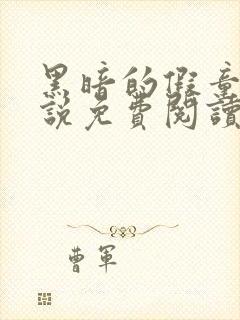 黑暗的假童
說免費閱讀
曹軍